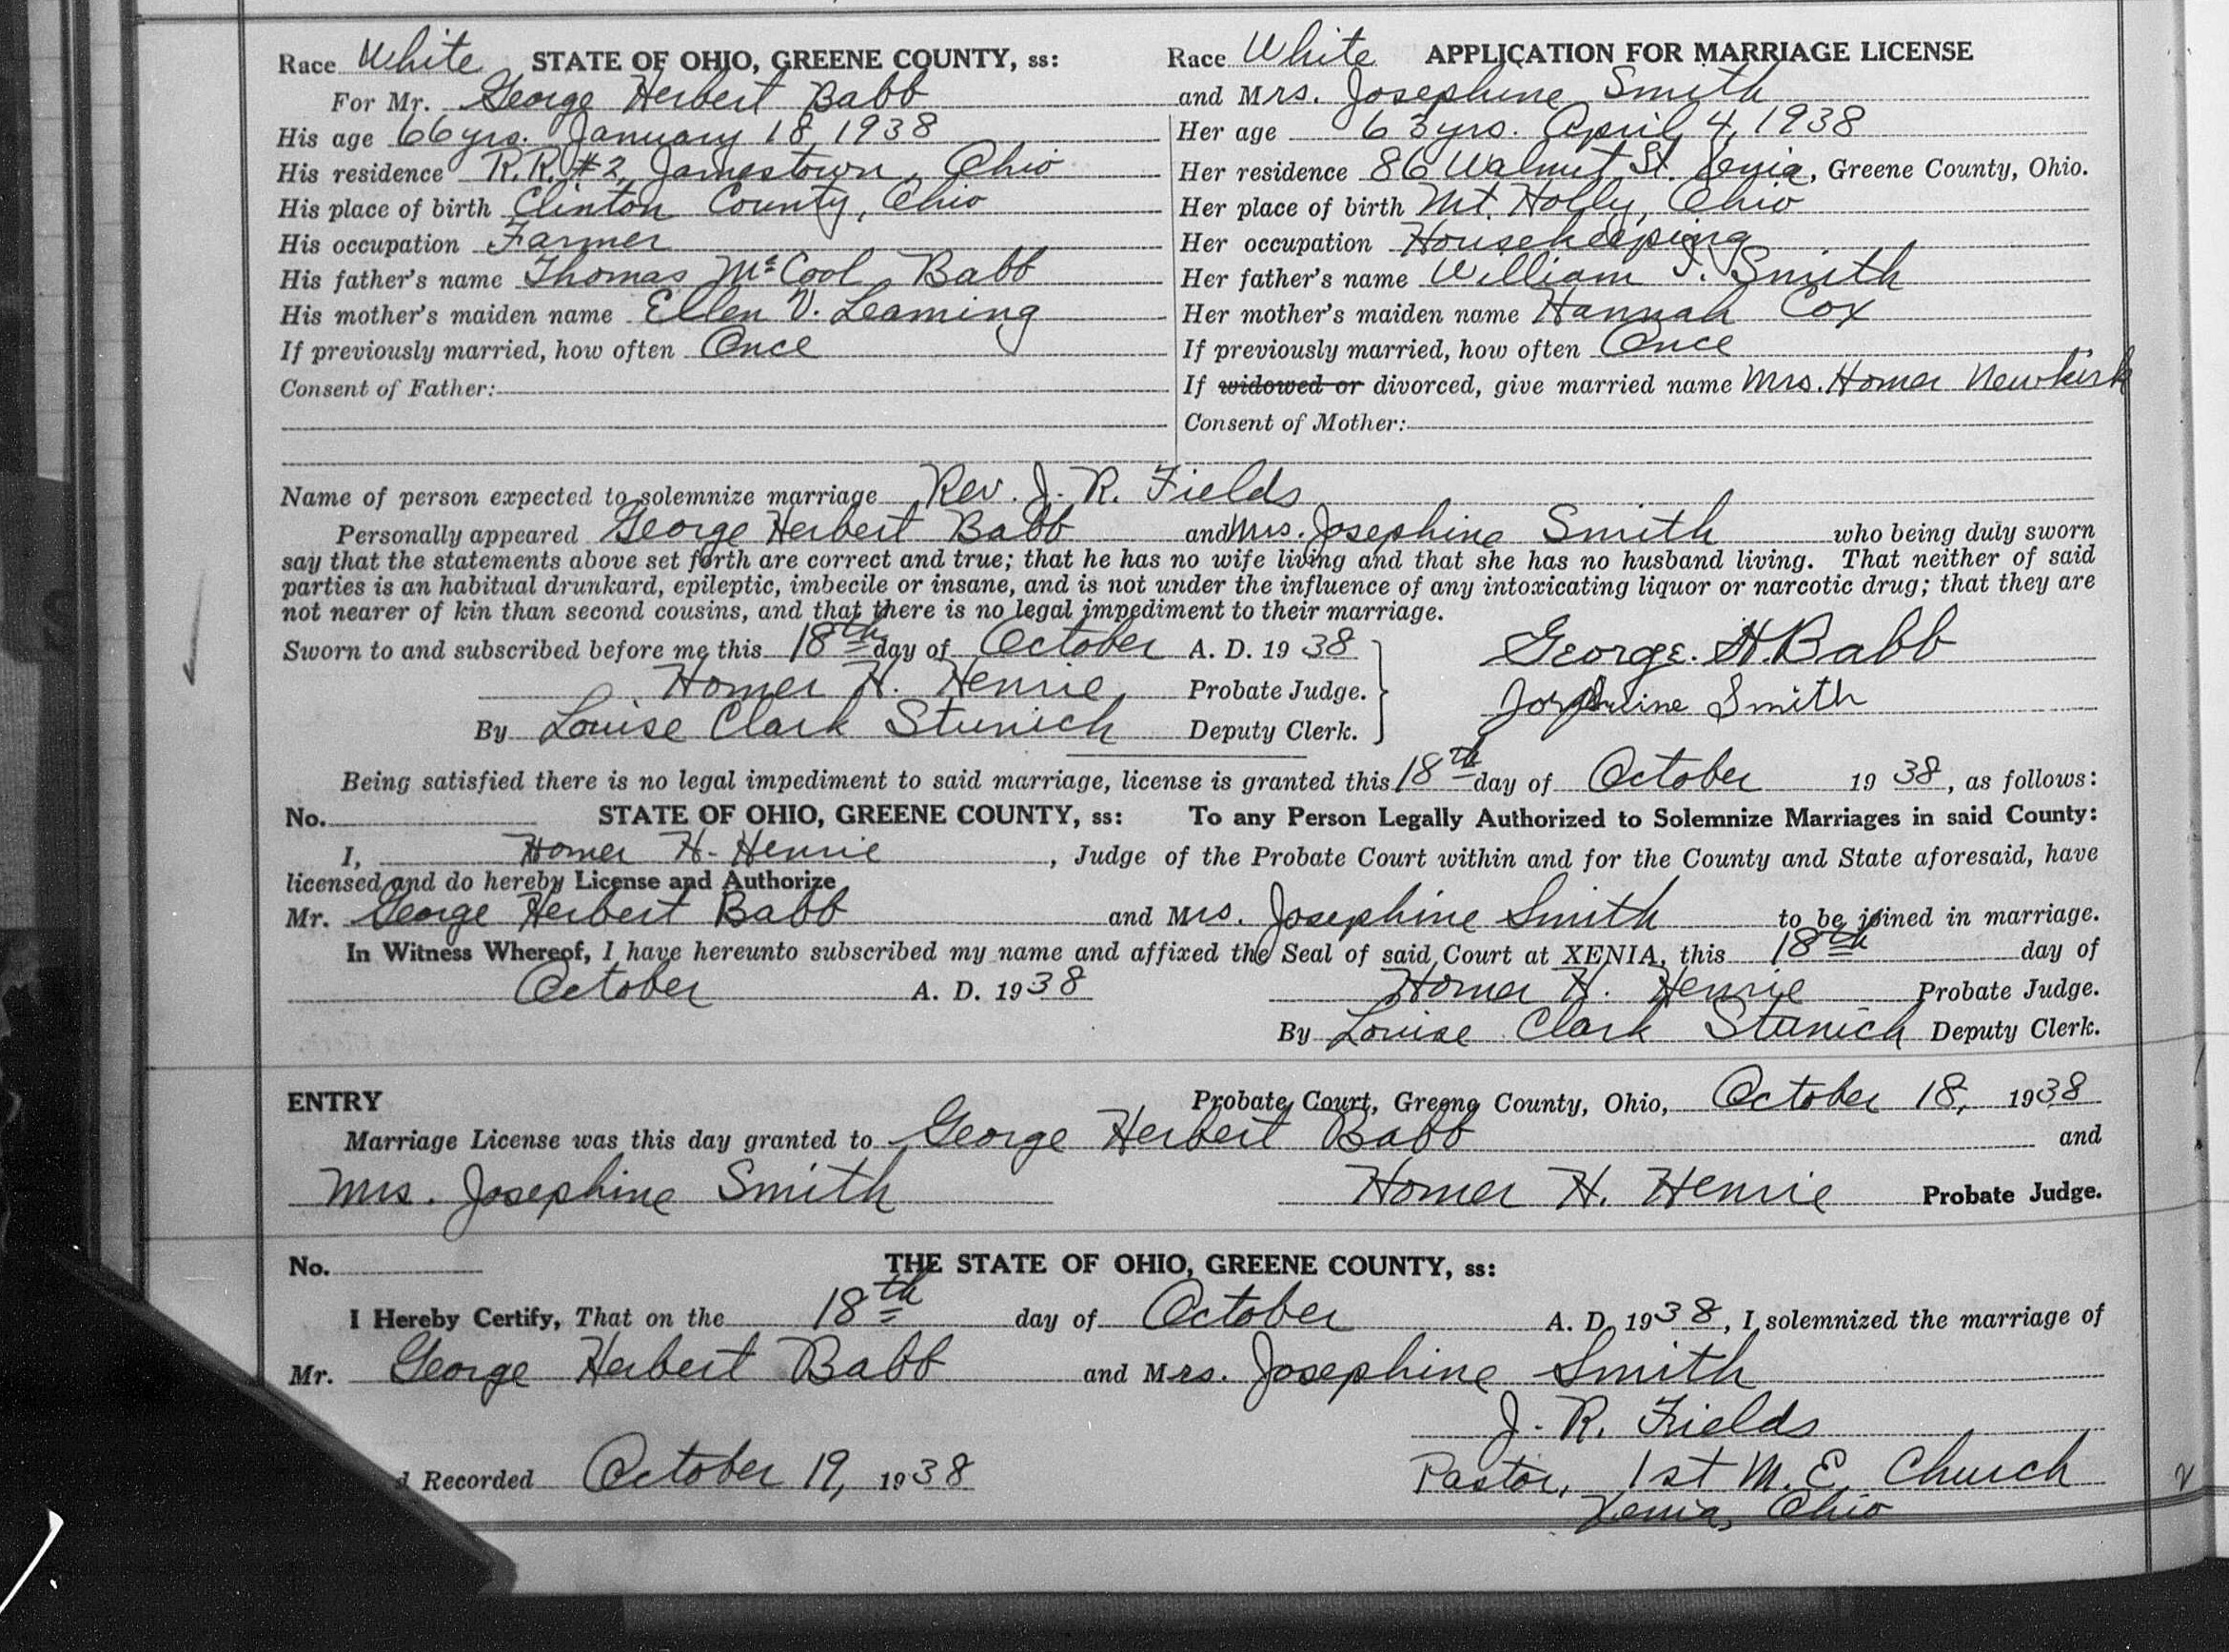 Race White STATE OF OHIO, GREENE COUNTY, ss: Race White APPLICATION FOR MARRIAGE LICENSE
For Mr. George Herbert Babb and Mrs. Josephine Smith
His age 66 yrs. January 18, 1938 Her age 63 yrs. April 4, 1938
His residence R.R. #2, Jamestown, Ohio Her residence 86 Walnut St. Xenia, Greene County, Ohio.
His place of birth Clinton County, Ohio Her place of birth Mt. Holly, Ohio
His occupation Farmer Her occupation Housekeeping
His father's name Thomas McCool Babb Her father's name William J. Smith
His mother's maiden name Ellen V. Leaming Her mother's maiden name Hannah Cox
If previously married, how often Once If previously married, how often Once
Consent of Father: If widowed or divorced, give married name Mrs. Homer Newkirk
Consent of Mother:
Name of person expected to solemnize marriage Rev. J. R. Fields
Personally appeared George Herbert Babb and Mrs. Josephine Smith who being duly sworn
say that the statements above set forth are correct and true; that he has no wife living and that she has no husband living. That neither of said
parties is an habitual drunkard, epileptic, imbecile or insane, and is not under the influence of any intoxicating liquor or narcotic drug; that they are
not nearer of kin than second cousins, and that there is no legal impediment to their marriage.
Sworn to and subscribed before me this 18th day of October A. D. 1938 George. H. Babb
Homer H. Henrie Probate Judge. Josephine Smith
By Louise Clark Stunich Deputy Clerk.
Being satisfied there is no legal impediment to said marriage, license is granted this 18th day of October 1938, as follows:
No. STATE OF OHIO, GREENE COUNTY, ss: To any Person Legally Authorized to Solemnize Marriages in said County:
I, Homer H. Henrie, Judge of the Probate Court within and for the County and State aforesaid, have
licensed and do hereby License and Authorize
Mr. George Herbert Babb and Mrs. Josephine Smith to be joined in marriage.
In Witness Whereof, I have hereunto subscribed my name and affixed the Seal of said Court at XENIA, this 18th day of
October A. D. 1938 Homer H. Henrie Probate Judge.
By Louise Clark Stunich Deputy Clerk.
ENTRY Probate Court, Greene County, Ohio, October 18, 1938
Marriage License was this day granted to George Herbert Babb and
Mrs. Josephine Smith Homer H. Henrie Probate Judge.
No. THE STATE OF OHIO, GREENE COUNTY, ss:
I Hereby Certify, That on the 18th day of October A. D. 1938, I solemnized the marriage of
Mr. George Herbert Babb and Mrs. Josephine Smith
J. R. Fields
Recorded October 19, 1938 Pastor, 1st M. E. Church
Xenia, Ohio